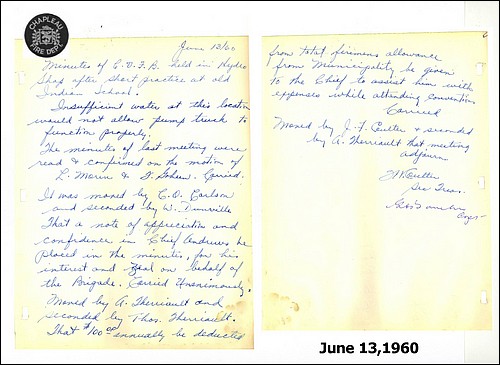 CHAPLEAU
FIRE DEPT.
June 13/60
Minutes of C.V.F.B. held in Hydro
Shop after short practice at old
Indian School.
Insufficient water at this location
would not allow pump truck to
function properly.
The minutes of last meeting were
read & confirmed on the motion of
L. Morin & Carried.
It was moved by C.O. Carlson
and seconded by W. Dunville
That a note of appreciation and
confidence in Chief Andrews be
placed in the minutes, for his
interest and zeal on behalf of
the Brigade. Carried Unanimously.
Moved by A. Therriault and
seconded by Thos. Therriault.
That $100.00 annually be deducted
from total firemens allowance
from Municipality be given
to the Chief to assist him with
expenses while attending convention
Carried
Moved by J.F. Coulter & seconded
by A. Therriault that meeting
adjourn.
Sec Treas.
June 13,1960